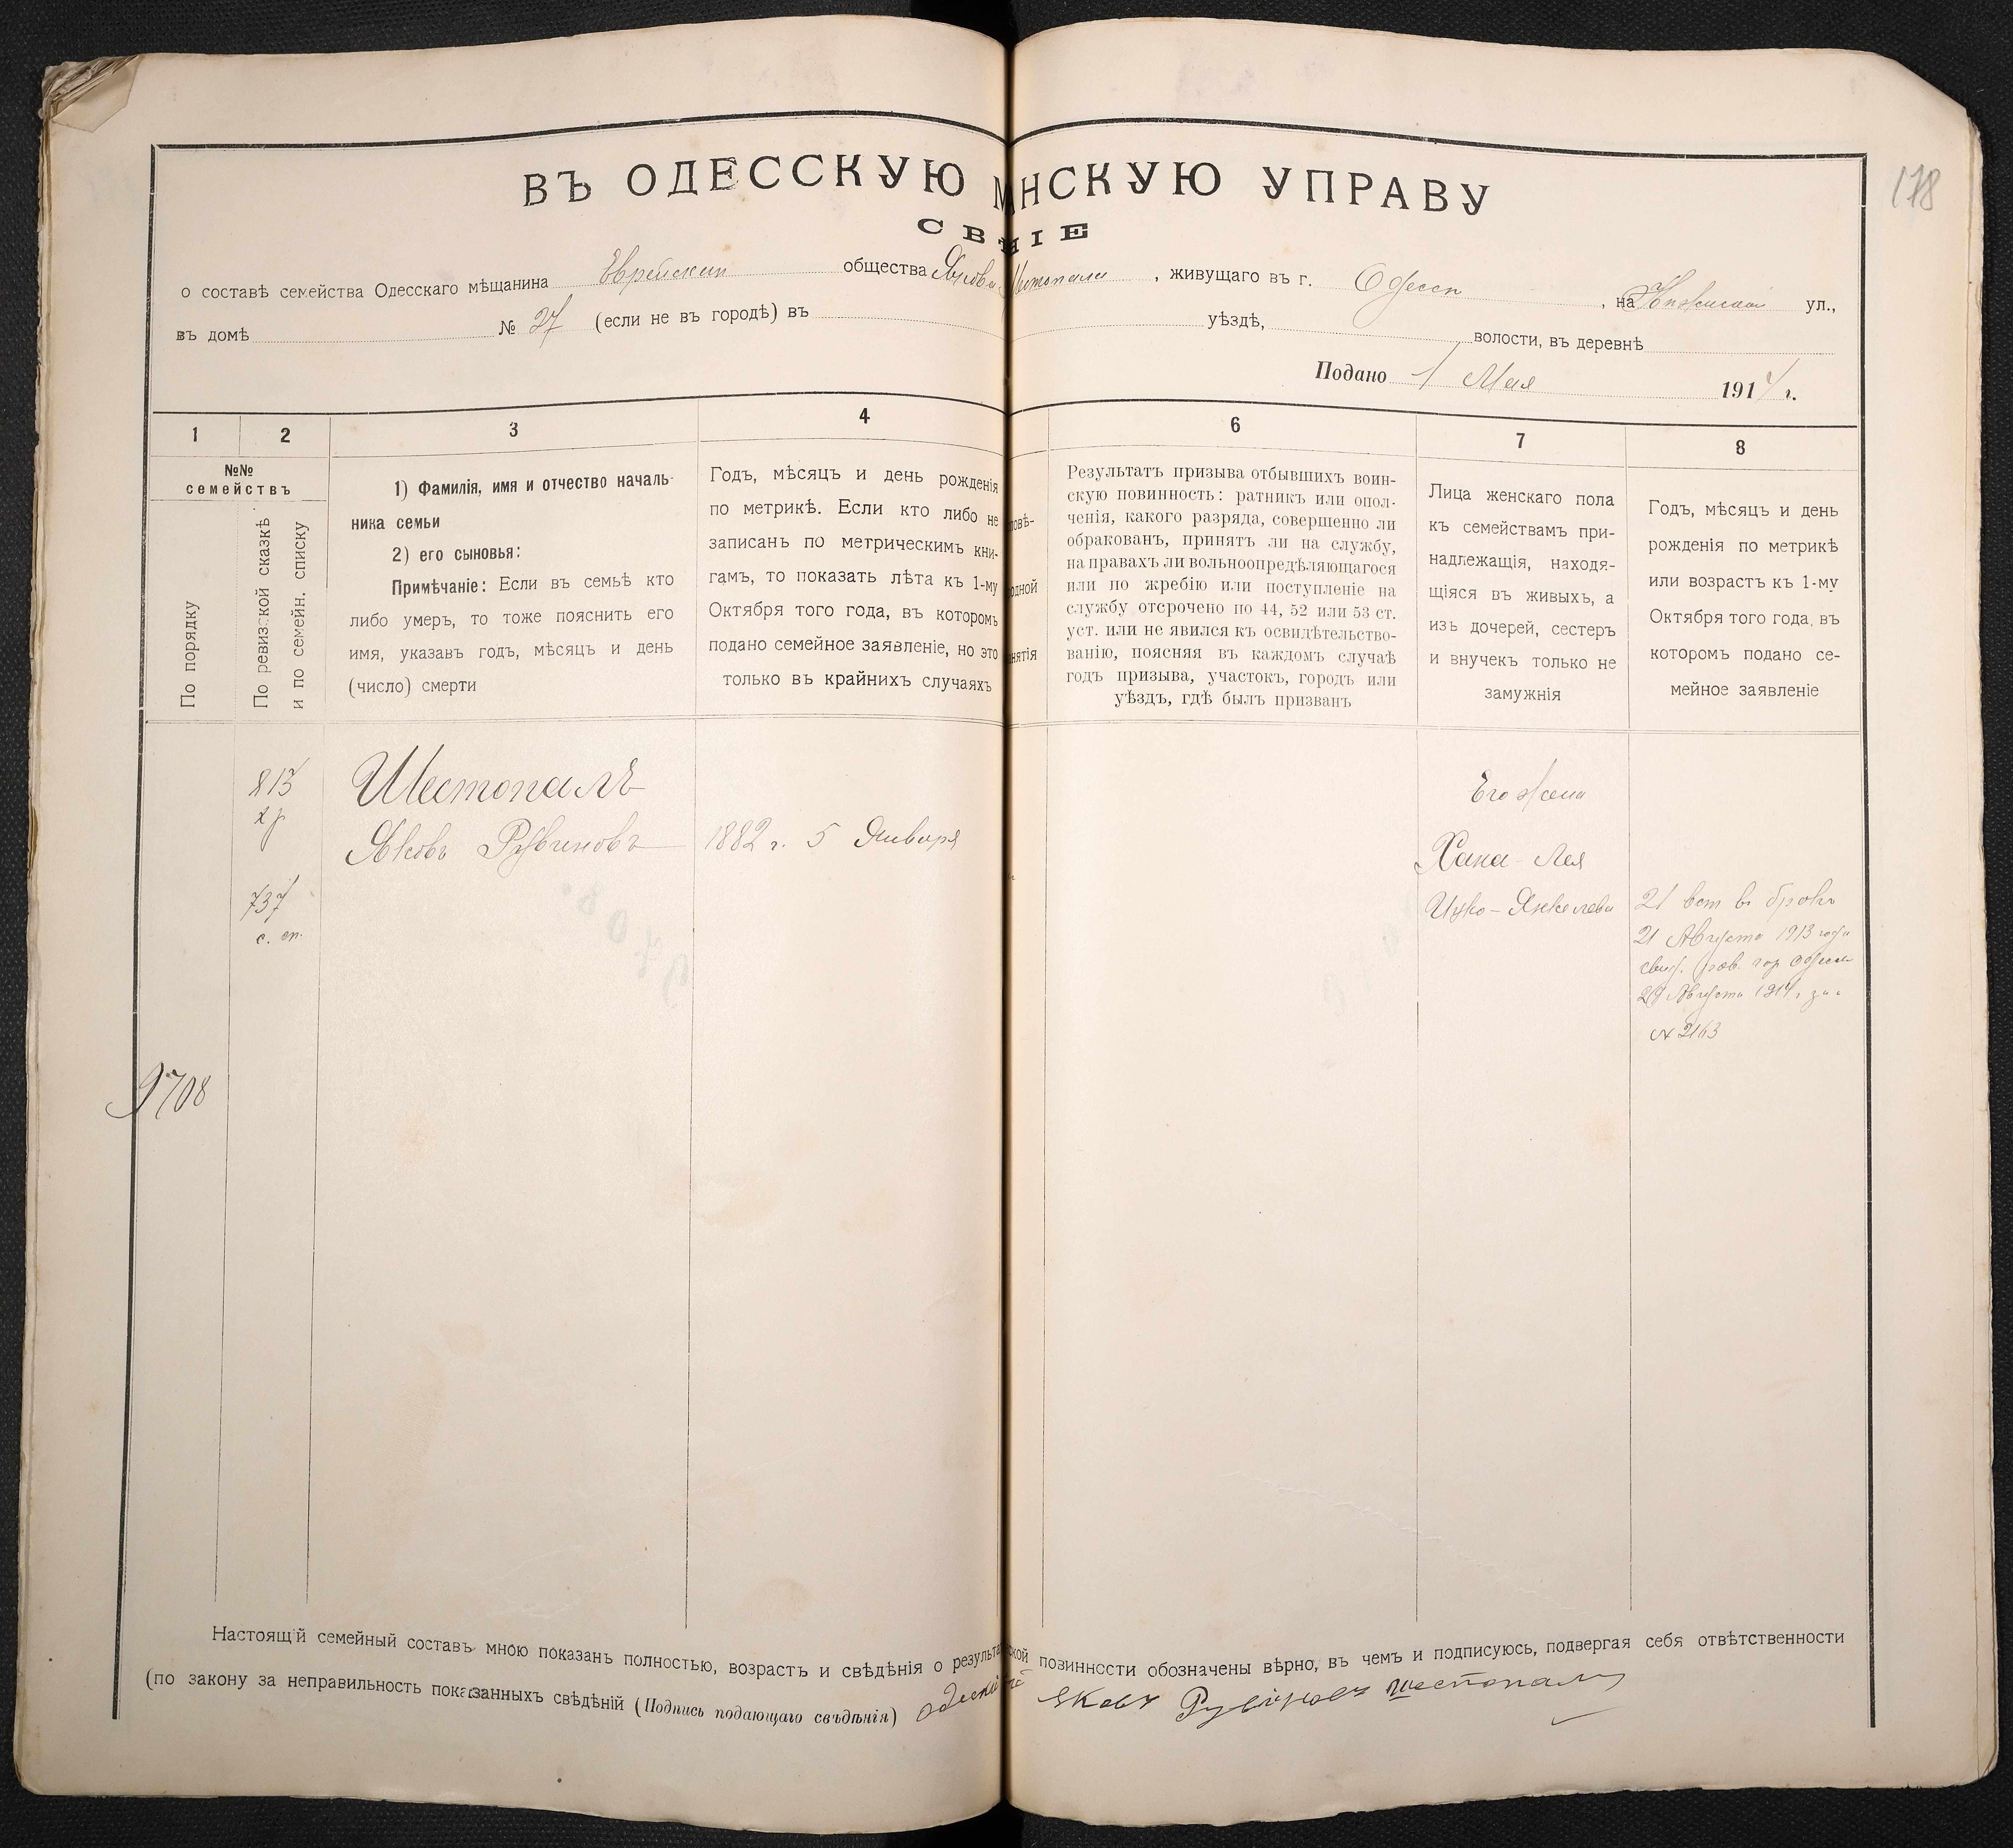 178
ВЪ ОДЕССКУЮ М НСКУЮ УПРАВУ
СВ НІЕ
о составѣ семейства Одесскаго мѣщанина Еврейскаго общества Якова Шестопала, живущаго въ г. Одессѣ, на ул.,
въ домѣ № 27 (если не въ городѣ) въ уѣздѣ, волости, въ деревнѣ
Подано 1 Мая 1914 г.
1 2 3 4 6 7 8
№№
семействъ
По порядку
По ревизской сказкѣ
и по семейн. списку
1) Фамилія, имя и отчество началь-
ника семьи
2) его сыновья:
Примѣчаніе: Если въ семьѣ кто
либо умеръ, то тоже пояснить его
имя, указавъ годъ, мѣсяцъ и день
(число) смерти
Годъ, мѣсяцъ и день рожденія
по метрикѣ. Если кто либо не
записанъ по метрическимъ кни-
гамъ, то показать лѣта къ 1-му
Октября того года, въ которомъ
подано семейное заявленіе, но это
только въ крайнихъ случаяхъ
повѣ-
одной
нятія
Результатъ призыва отбывшихъ воин-
скую повинность: ратникъ или опол-
ченія, какого разряда, совершенно ли
обракованъ, принятъ ли на службу,
на правахъ ли вольноопредѣляющагося
или по жребію или поступленіе на
службу отсрочено по 44, 52 или 53 ст.
уст. или не явился къ освидѣтельство-
ванію, поясняя въ каждомъ случаѣ
годъ призыва, участокъ, городъ или
уѣздъ, гдѣ былъ призванъ
Лица женскаго пола
къ семействамъ при-
надлежащія, находя-
щіяся въ живыхъ, а
изъ дочерей, сестеръ
и внучекъ только не
замужнія
Годъ, мѣсяцъ и день
рожденія по метрикѣ
или возрастъ къ 1-му
Октября того года, въ
которомъ подано се-
мейное заявленіе
813
2 р
Шестопалъ
Яковъ Рувиновъ
1882 г. 5 Января
737
с. сп.
Его жена
Хана-Лея
Ицко-Янкелева
21 вст въ бракъ
21 Августа 1913 года
свид. рав. гор Одессы
Августа 1914 г. за
№ 2163
9708
Настоящій семейный составъ мною показанъ полностью, возрастъ и свѣдѣнія о результа ской повинности обозначены вѣрно, въ чемъ и подписуюсь, подвергая себя отвѣтственности
(по закону за неправильность показанныхъ свѣдѣній (Подпись подающаго свѣдѣнія) Яковъ Рувиновъ шестопалъ